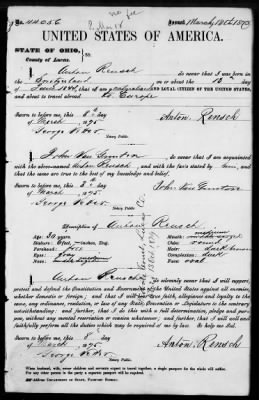 no fee
No. 44056
Issued March 12th 1895
UNITED STATES OF AMERICA.
STATE OF OHIO,
County of Lucas. } ss.
I, Anton Rensch do swear that I was born in
Switzerland on or about the 13th day
of June 1844, that I am a naturalized and LOYAL CITIZEN OF THE UNITED STATES,
and about to travel abroad to Europe
Sworn to before me, this 8th day
of March 1895
Anton. Rensch
Notary Public.
I, John Van do swear that I am acquainted
with the above-named Anton Rensch, and with the facts stated by him, and
that the same are true to the best of my knowledge and belief.
Sworn to before me, this 8th day
of March 1895
John Van
Notary Public.
Description of Anton Rensch
Age: 50 years
Stature: feet inches, Eng.
Forehead:
Eyes: Gray
Nose:
Mouth: medium
Chin: round
Hair: dark brown
Complexion: dark
Face: oval
I, Anton Rensch do solemnly swear that I will support,
protect and defend the Constitution and Government of the United States against all enemies,
whether domestic or foreign; and that I will bear true faith, allegiance and loyalty to the
same, any ordinance, resolution or law of any State, Convention or Legislature to the contrary
notwithstanding; and further, that I do this with a full determination, pledge and
purpose, without any mental reservation or evasion whatsoever; and further, that I will well and
faithfully perform all the duties which may be required of me by law. So help me God.
Sworn to before me, this 8th day
of March 1895
Anton. Rensch
Notary Public.
When husband, wife, minor children and servants expect to travel together, a single passport for the whole will suffice.
For any other person in the party a separate passport will be required.
Address DEPARTMENT OF STATE, PASSPORT BUREAU.